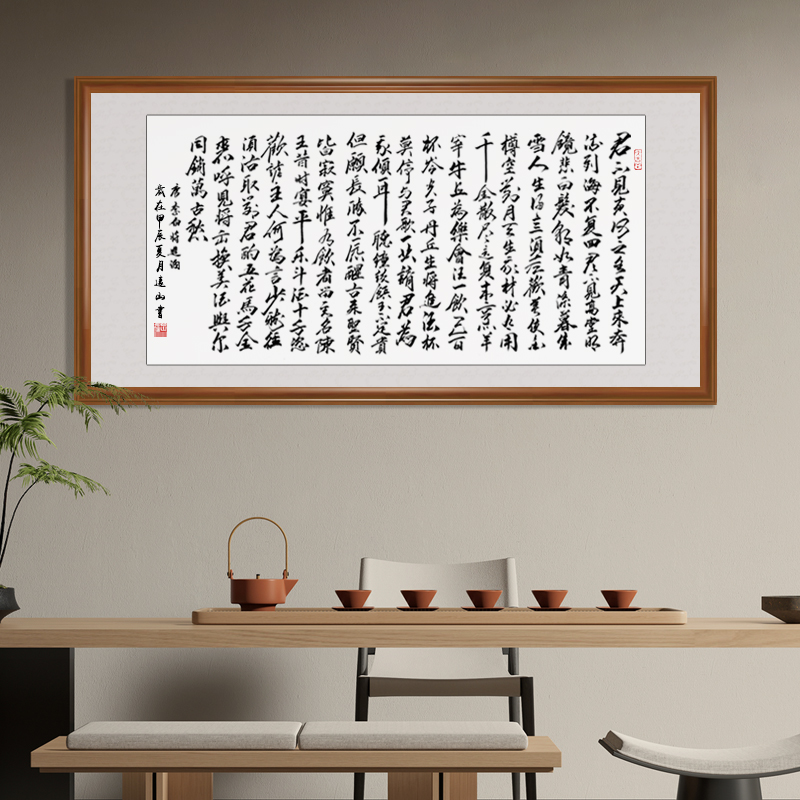 君不見黃河之水天上來奔
流到海不复回君不見高堂明
鏡悲白髮朝如青絲暮成
雪人生得意須盡歡莫使金
樽空對月天生我材必有用
千金散盡還复來烹羊
宰牛且為樂會須一飲三百
杯岑夫子丹丘生將進酒杯
莫停与君歌一曲請君為
我傾耳聽鐘鼓饌玉不足貴
但願長醉不愿醒古來聖賢
皆寂寞惟有飲者留其名陳
王昔時宴平乐斗酒十千恣
歡謔主人何為言少錢徑
須沽取對君酌五花馬千金
裘呼兒將出換美酒與尔
同銷萬古愁
唐李白將進酒
歲在甲辰夏月遠山書